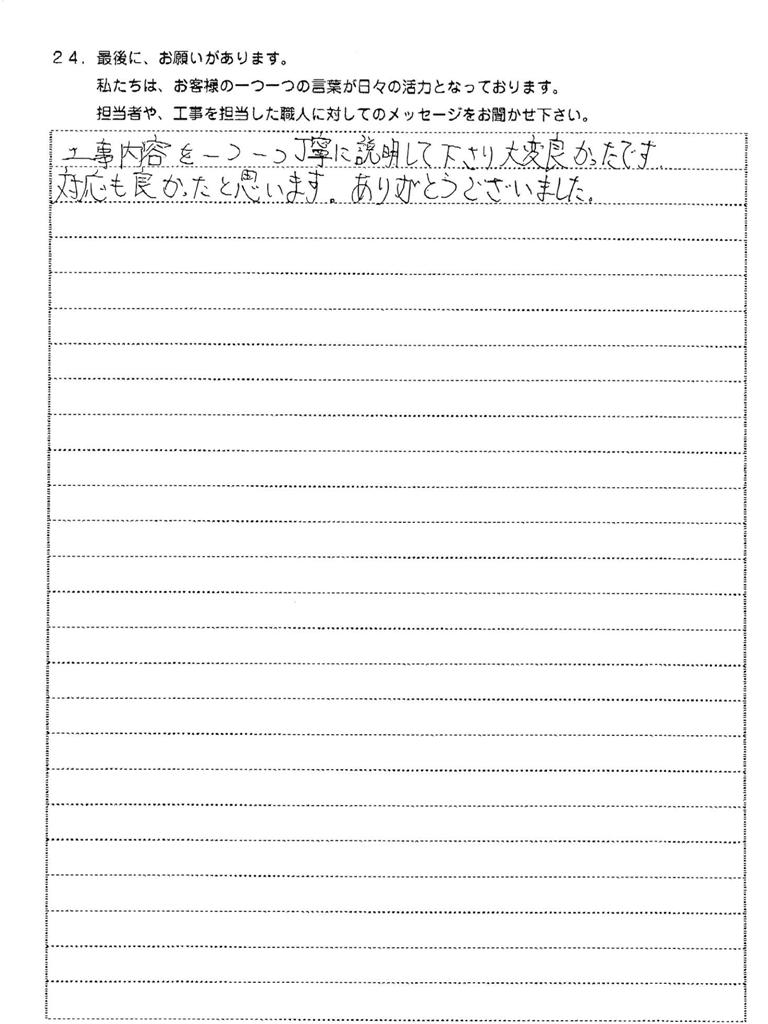 24．最後に、お願いがあります。
私たちは、お客様の一つ一つの言葉が日々の活力となっております。
担当者や、工事を担当した職人に対してのメッセージをお聞かせ下さい。
工事内容を一つ一つ丁寧に説明して下さり大変良かったです。
対応も良かったと思います。ありがとうございました。